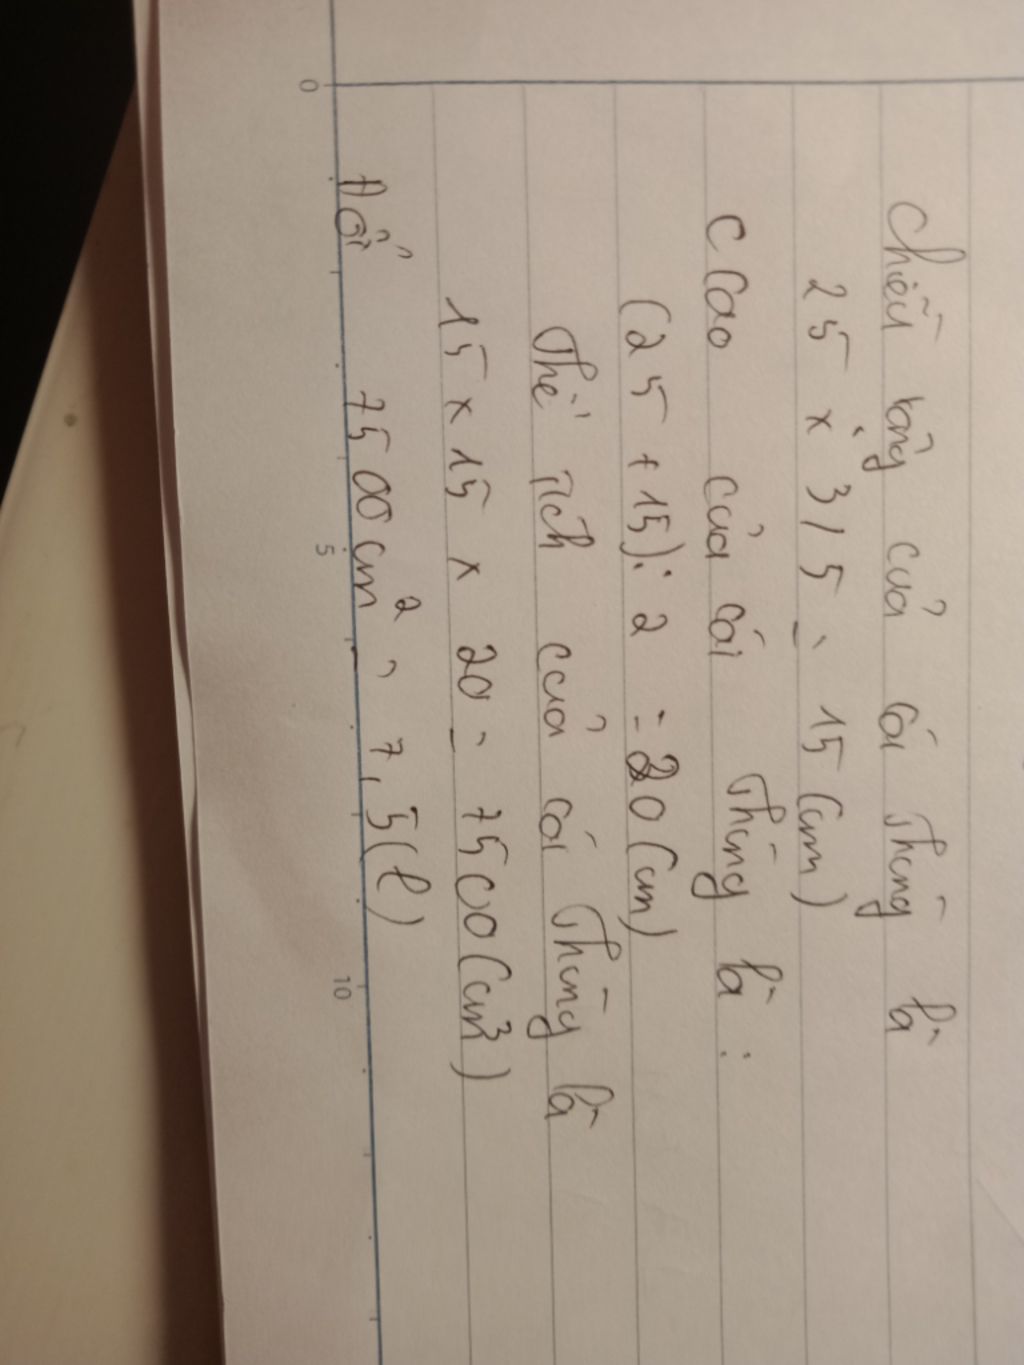 Chiều rộng của cái thùng là
25 x 3/5 = 15 (cm)
C Cao của cái thùng là :
(25 + 15) : 2 = 20 (cm)
Thể tích của cái thùng là
15 x 15 x 20 = 7500 (cm³)
Đổi 7500 cm² = 7,5 (l)
0 5 10